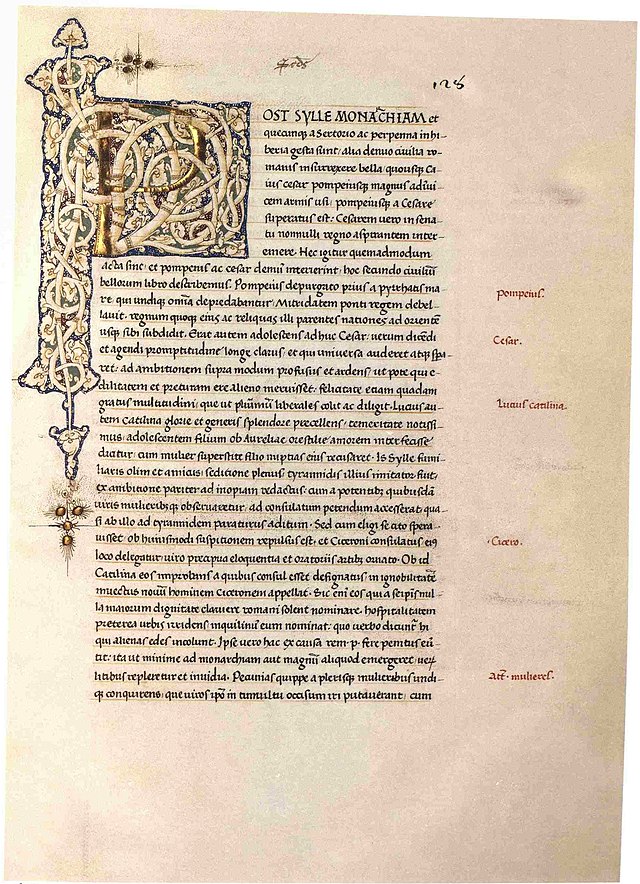 128
POST SYLLE MONACHIAM et
quecunq a Sertorio ac perpenna in hi-
beria gesta sunt: alia denuo ciuilia ro-
manis insurrexere bella quousq Ca
ius cesar pompeiusq magnus ad iui
cem armis usi: pompeiusq a Cesare
superatus est. Cesarem uero in sena
tu nonnulli regno aspirantem inter-
emere. Hec igitur quemadmodum
acta sint: et pompeius ac cesar demum interierint: hoc secundo ciuilium
bellorum libro describemus. Pompeius depurgato prius a pyrhatis ma
re: qui undiq omnia depredabantur: Mitridatem ponti regem debel-
lauit: regnumq eius ac reliquas illi parentes nationes ad orientem
usq sibi subdidit. Erat autem adolescens adhuc Cesar: uerum dicendi
et agendi promptitudine longe clarus: et qui uniuersa auderet atq spe-
ret: ad ambitionem supra modum profusus et ardens: ut pote qui e-
dilitatem et preturam ere alieno meruisset: felicitate etiam quadam
gratus multitudini: que ut plurimum liberales colit ac diligit. Lucius au-
tem Catilina glorie et generis splendore precellens: temeritate notissi
mus: adolescentem filium ob Aurelie orestille amorem interfecisse
dicitur: cum mulier superstite filio nuptias eius recusaret. Is Sylle fami
liaris olim et amicus: seditione plenus: tyrannidis illius imitator fuit:
ex ambitione pariter ad inopiam redactus: cum a potentibus quibusdam
uiris mulieribusq obseruaretur: ad consulatum petendum accesserat: qua
si ab illo ad tyrannidem paraturus aditum. Sed cum eligi se cito spera
uisset: ob huiusmodi suspitionem repulsus est: et Ciceroni consulatus eius
loco delegatur: uiro precipua eloquentia et oratoriis artibus ornato. Ob id
Catilina eos improbans a quibus consul esset designatus in ignobilitatem
inuectus nouum hominem Ciceronem appellat. Sic enim eos qui a se ipsis nul
la maiorum dignitate clauiere romani solent nominare. hospitalitatem
preterea urbis irridens inquilinum eum nominat: quo uerbo dicuntur hi
qui alienas edes incolunt. Ipse uero hac ex causa rem. p. fere penitus eui
tat: ita ut minime ad monarchiam aut magnum aliquod emergeret: uerum
litibus repleretur et inuidia. Pecunias quippe a plerisq mulieribus undi-
q conquirens: que uiros ipsorum in tumultu occisum iri putauerant: cum
Pompeius.
Cesar.
Lucius catilina.
Cicero.
mulieres.